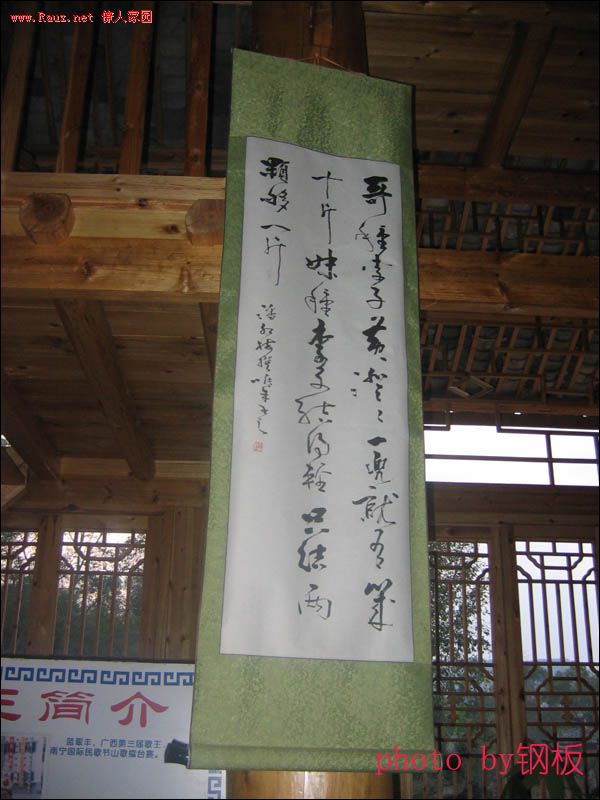 www.Rauz.net 僚人家园
哥種李子黃澄〻一兜就有幾
十斤妹種李子结得輕只结兩
顆够八斤
王简介
广西第三届歌王，
南宁国际民歌节山歌擂台赛。
photo by钢板